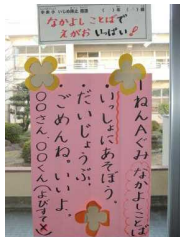 なかよしことばで
えがおいっぱい!
一ねんAぐみ なかよしことば
・いっしょにあそぼう。
・だいじょうぶ。
・ごめんね。いいよ。
○○さん、○○くん(よびすて×)